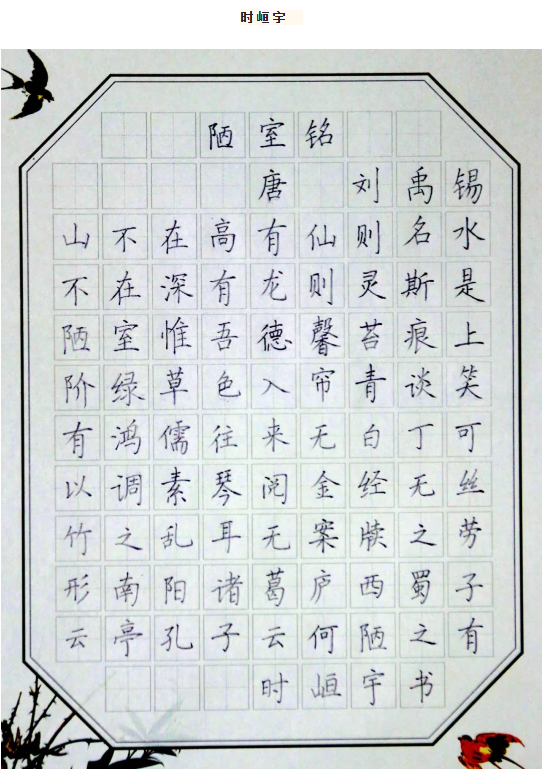 时峘宇
陋室铭
唐 刘禹锡
山不在高有仙则名水
不在深有龙则灵斯是
陋室惟吾德馨苔痕上
阶绿草色入帘青谈笑
有鸿儒往来无白丁可
以调素琴阅金经无丝
竹之乱耳无案牍之劳
形南阳诸葛庐西蜀子
云亭孔子云何陋之有
时峘宇书